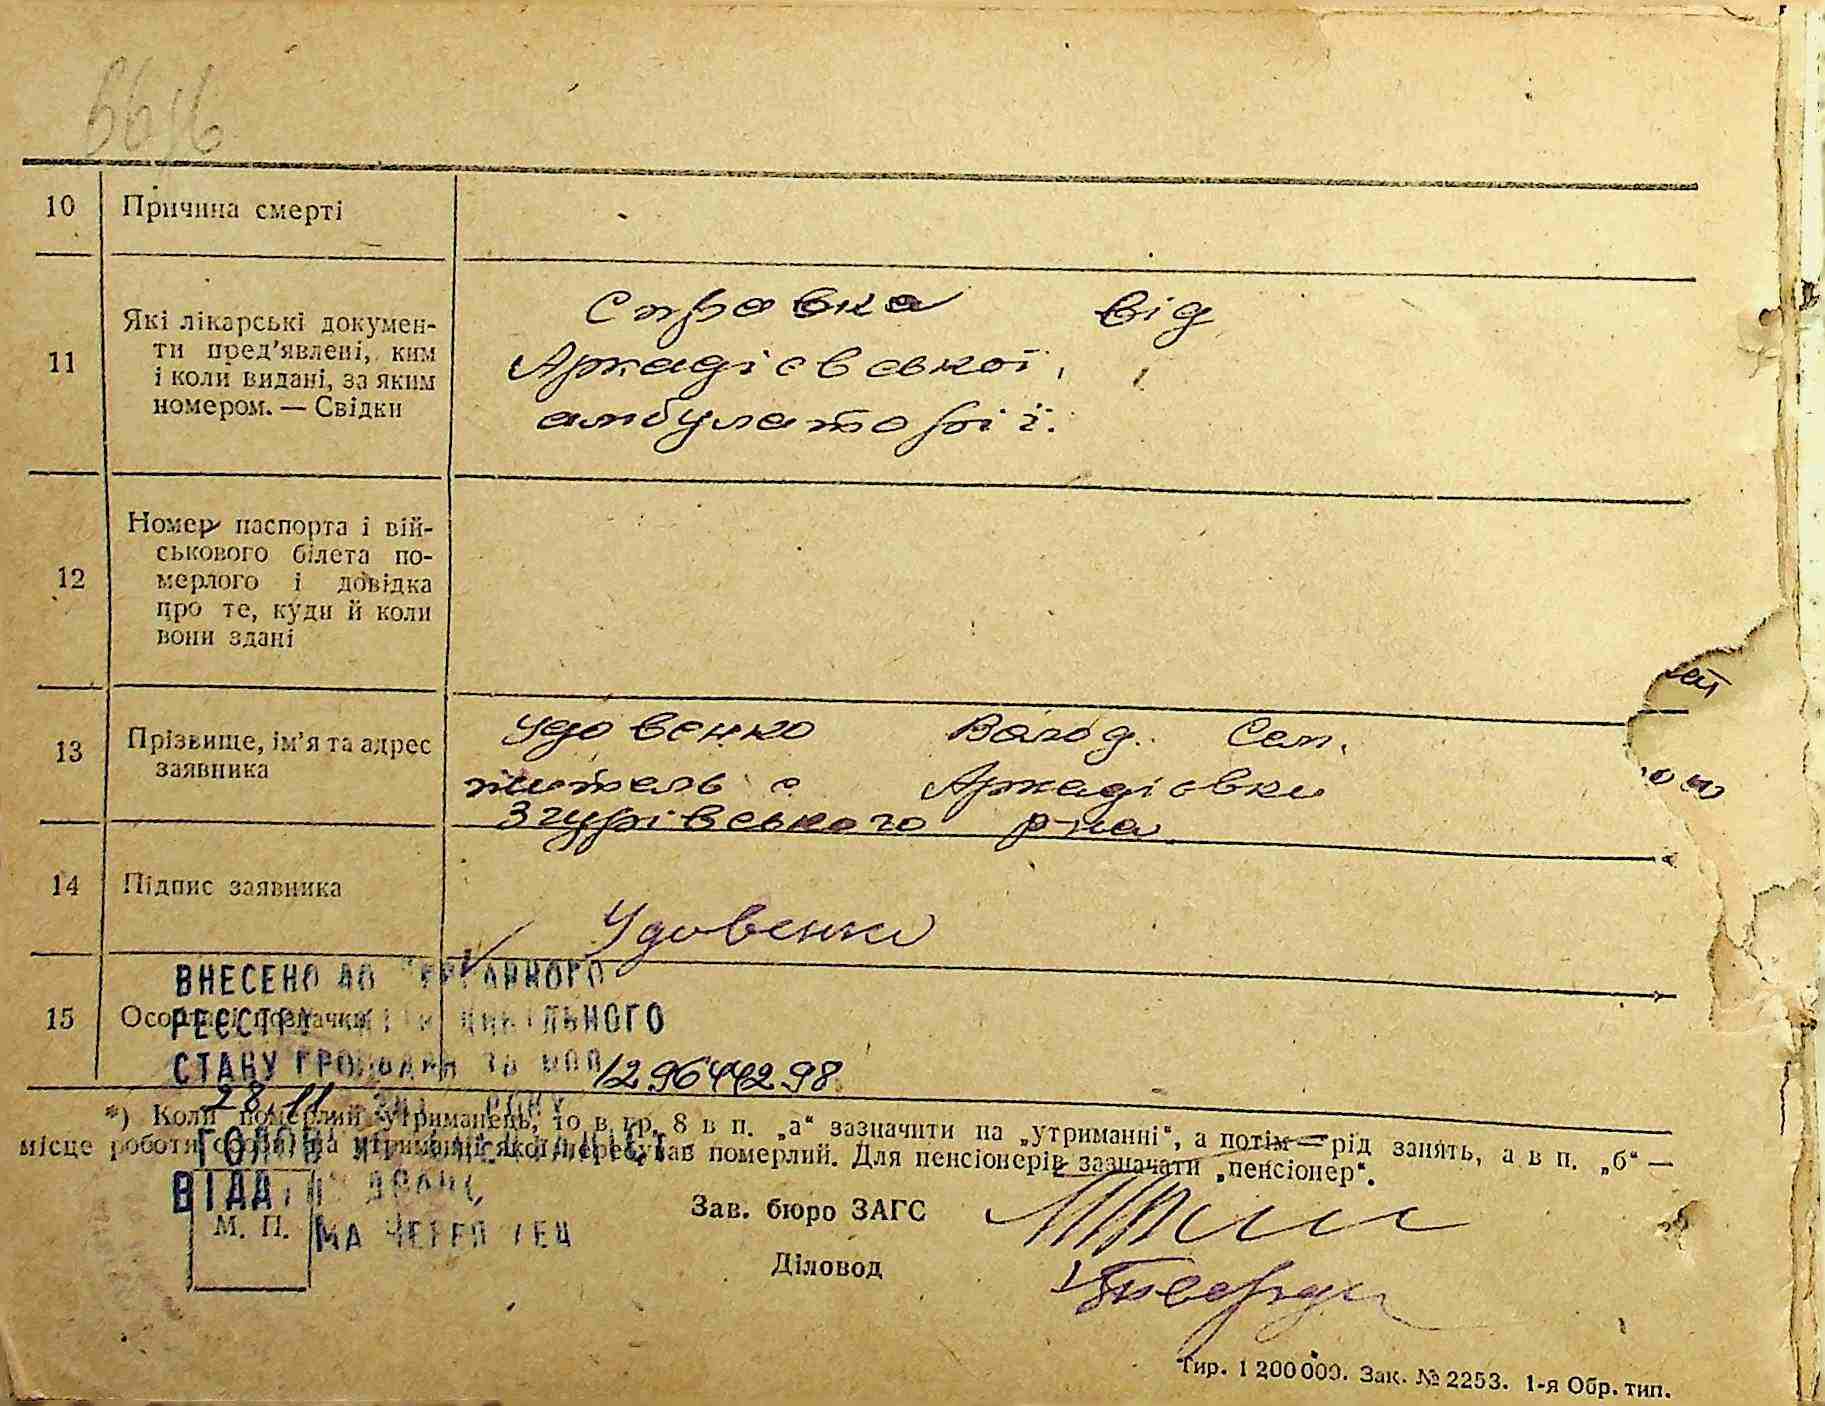 10 Причина смерті
11 Які лікарські докумен-
ти пред’явлені, ким
і коли видані, за яким
номером. — Свідки
Справка від
Аркадієвської
амбулаторії.
12 Номер паспорта і вій-
ськового білета по-
мерлого і довідка
про те, куди й коли
вони здані
13 Прізвище, ім’я та адрес
заявника
Удовенко Волод. Сем.
житель с Аркадієвки
Згурівського р-на
14 Підпис заявника
Удовенко
15 Особливі позначки
ВНЕСЕНО ДО ДЕРЖАВНОГО
РЕЄСТРУ АКТІВ ЦИВІЛЬНОГО
СТАНУ ГРОМАДЯН ЗА 12964298
28.11 РОКУ
*) Коли померлий утриманець, то в гр. 8 в п. „а“ зазначити на „утриманні“, а потім — рід занять, а в п. „б“ —
місце роботи особи, на утриманні якої перебував померлий. Для пенсіонерів зазначати „пенсіонер“.
М. П.
Зав. бюро ЗАГС
Діловод
Тир. 1 200 000. Зак. № 2253. 1-я Обр. тип.